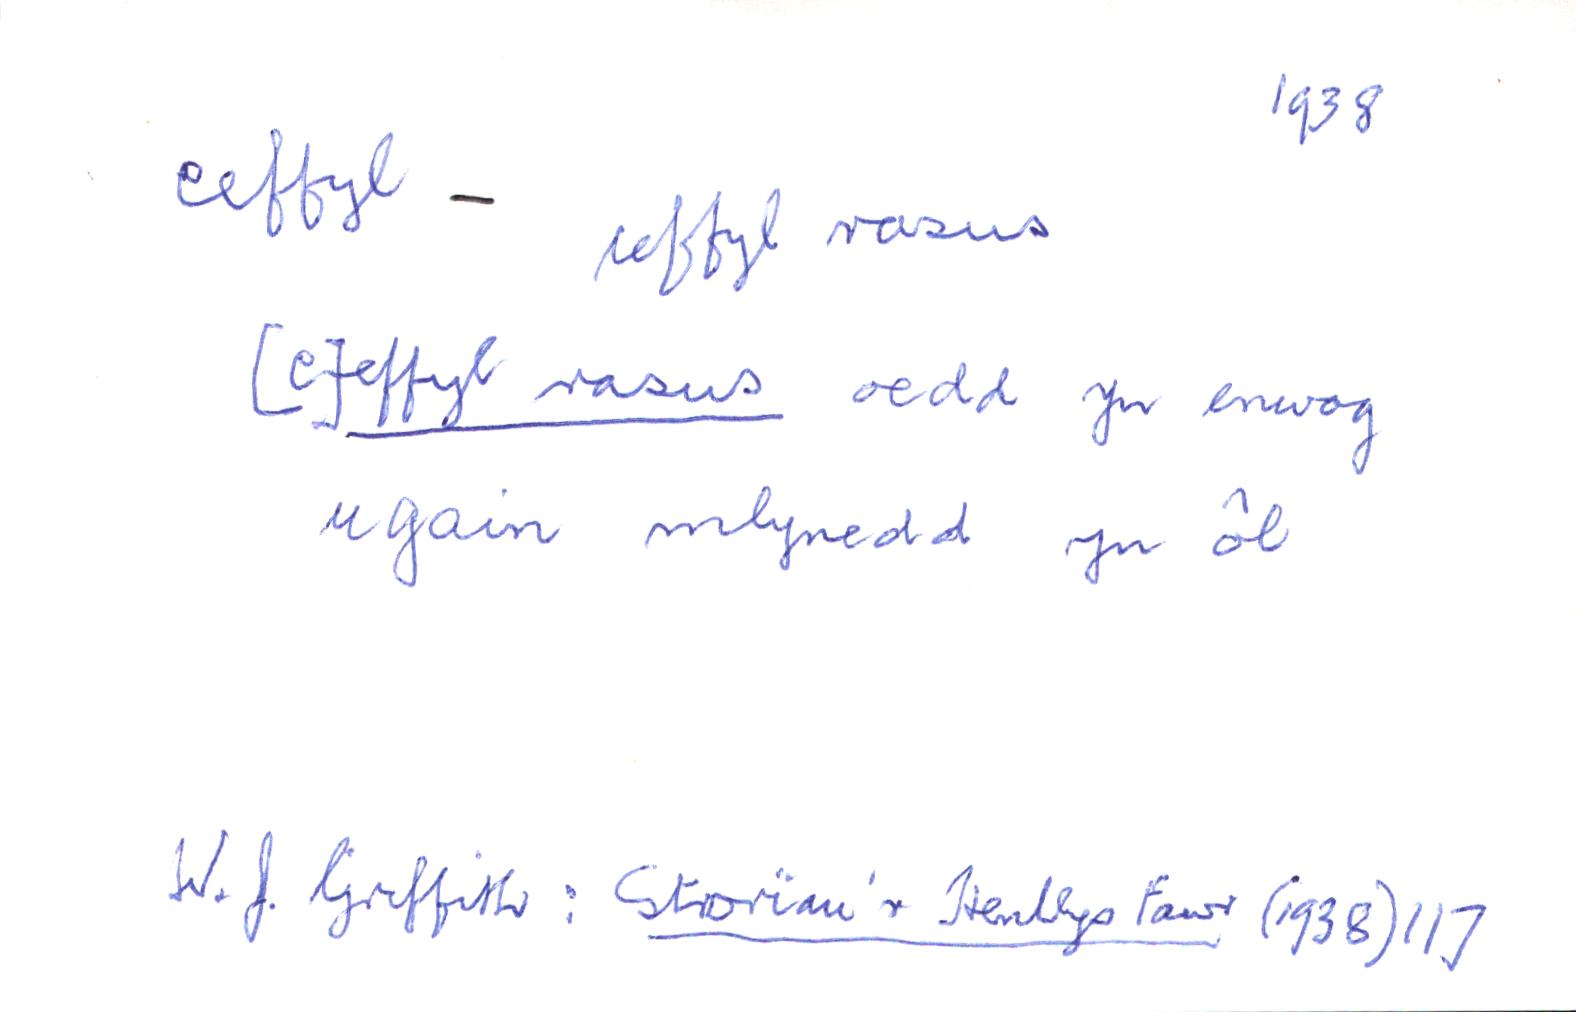 1938
ceffyl –
ceffyl rasus
[C]effyl rasus oedd yn enwog
ugain mlynedd yn ôl
W. J. Griffith : Storïau'r Henllys Fawr (1938) 117